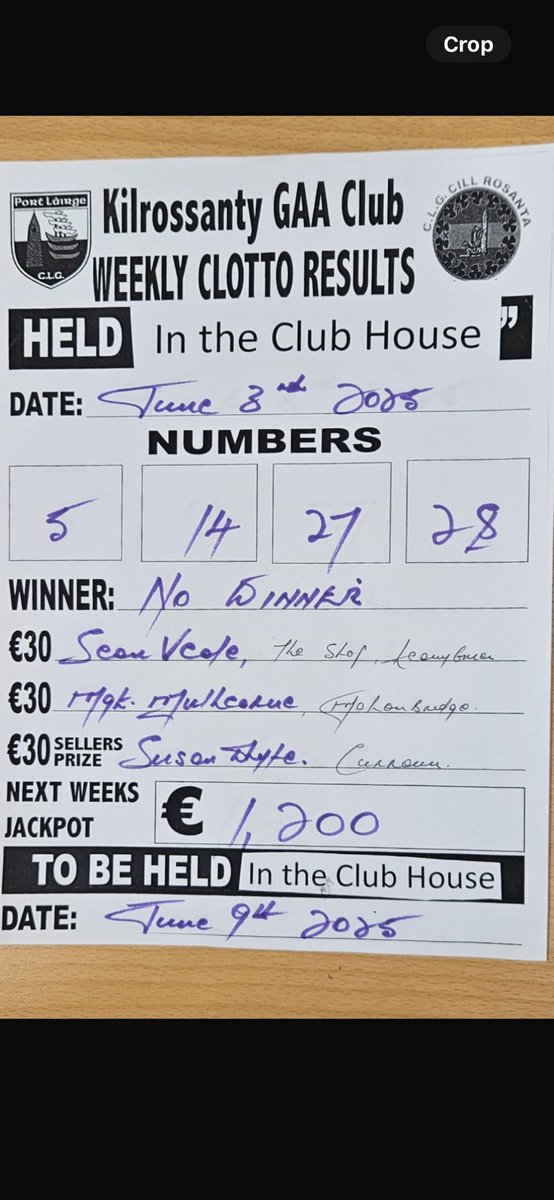 Crop
PORT LÁIRGE
C.L.G.
C.L.G. CILL ROSANTA
Kilrossanty GAA Club
WEEKLY CLOTTO RESULTS
HELD In the Club House "
DATE: June 3rd 2025
NUMBERS
5 14 27 28
WINNER: No WINNER
€30 Sean Veale, The Shop,
€30 Mgt. Mulhearne, Mahonbridge.
€30 SELLERS PRIZE Susan Whyte. Curraun.
NEXT WEEKS
JACKPOT € 1,200
TO BE HELD In the Club House
DATE: June 9th 2025